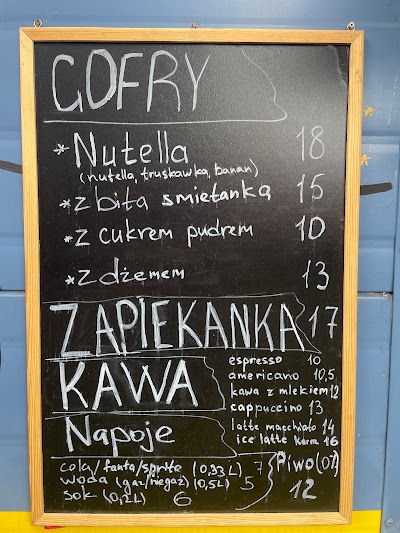 GOFRY
* Nutella 18
(nutella, truskawka, banan)
* z bitą śmietanką 15
* z cukrem pudrem 10
* z dżemem 13
ZAPIEKANKA 17
KAWA
espresso 10
americano 10,5
kawa z mlekiem 12
cappuccino 13
latte macchiato 14
ice latte karm. 16
Napoje
cola/fanta/sprite (0,33L) 7
woda (gaz/niegaz) (0,5L) 5
sok (0,2L) 6
Piwo (0%)
12